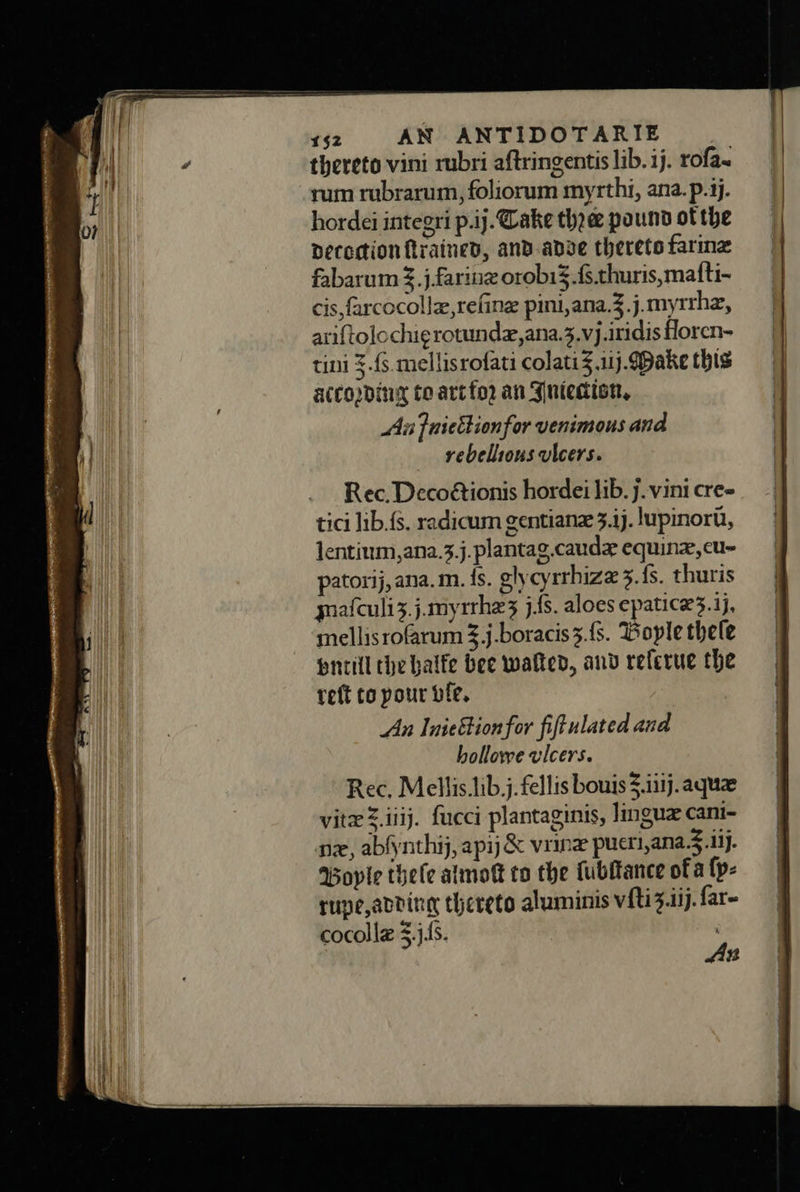 152 AN ANTIDOTARIE
thereto vini rubri aſtringentis lib. ij. roſa-
rum rubrarum, foliorum myrthi, ana. p. ij.
hordei integri p. ij. Take thrée pound of the
decoction ſtrained, and adde thereto farinæ
fabarum ℥. j. farinæ orobi ℥. ſs. thuris, maſti-
cis, ſarcocollæ, reſinæ pini, ana. ℥. j. myrrhæ,
ariſtolochię rotundæ, ana. ʒ. vj. iridis floren-
tini ℥. ſs. mellis roſati colati ℥. iij. Make this
according to art for an Iniection.
An Iniection for venimous and
rebellious vlcers.
Rec. Decoctionis hordei lib. j. vini cre-
tici lib. ſs. radicum gentianæ ʒ. ij. lupinorū,
lentium, ana. ʒ. j. plantag. caudæ equinæ, eu-
patorij, ana. m. ſs. glycyrrhizæ ʒ. ſs. thuris
maſculi ʒ. j. myrrhæ ʒ j. ſs. aloes epaticæ ʒ. ij.
mellis roſarum ℥. j. boracis ʒ. ſs. Boyle theſe
vntill the halfe bee waſted, and reſerue the
reſt to your vſe.
An Iniection for fiſtulated and
hollowe vlcers.
Rec. Mellis. lib. j. fellis bouis ℥. iiij. aquæ
vitæ ℥. iiij. ſucci plantaginis, linguæ cani-
næ, abſynthij, apij & vrinæ pueri, ana. ℥. iij.
Boyle theſe almoſt to the ſubſtance of a ſy-
rupe, adding thereto aluminis vſti ʒ. iij. ſar-
cocollæ ℥. j. ſs.
An